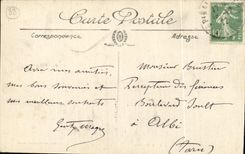 Carte Postale
Correspondance
Adresse
Avec mes amitiés,
mes bons souvenirs et
mes meilleurs souhaits
Monsieur
Percepteur des finances
Boulevard Soult
à Albi
(Tarn)